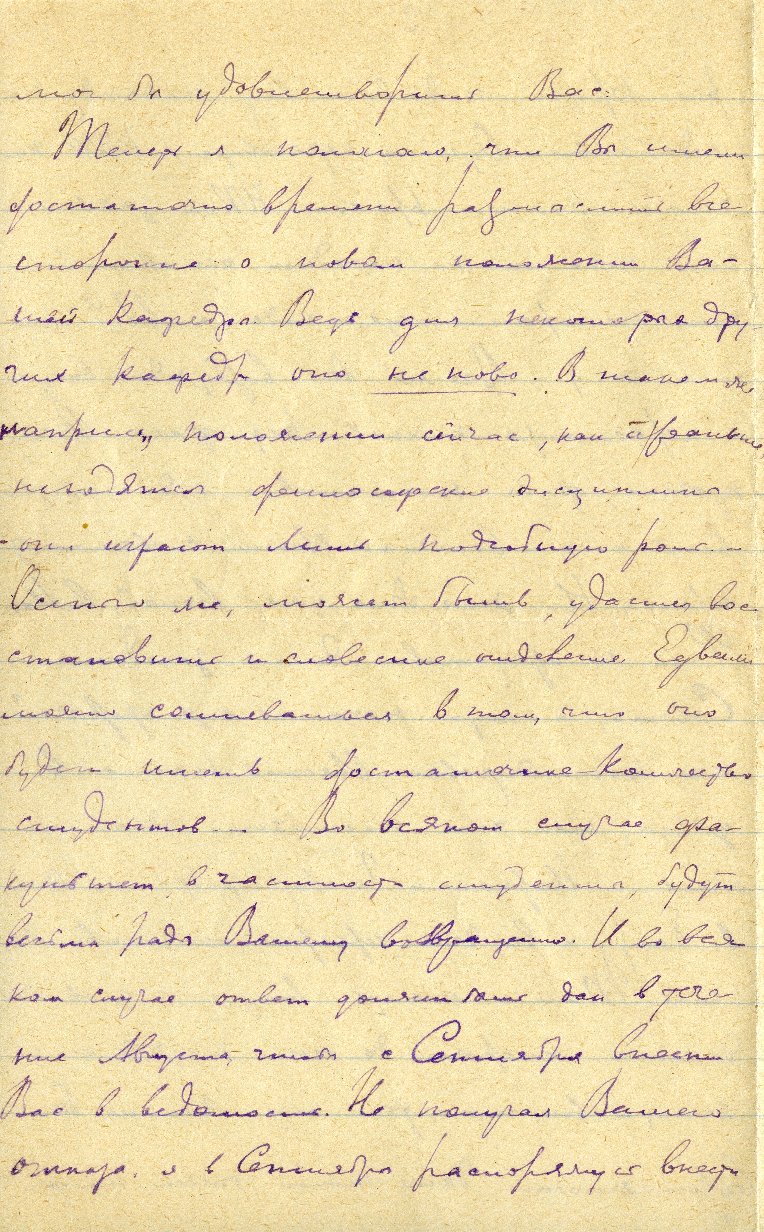 мог бы удовлетворить Вас.
Теперь я полагаю, что Вы имели
достаточно времени размыслить все-
сторонне о новом положении Ва-
шей кафедры. Ведь для некоторых дру-
гих кафедр оно не ново. В таком же
наприм., положении сейчас, как и раньше,
находятся философские дисциплины
- они играют лишь подсобную роль. -
Осенью же, может быть, удастся вос-
становить и словесное отделение. Едва ли
можно сомневаться в том, что оно
будет иметь достаточное количество
студентов. - Во всяком случае фа-
культет, в частности студенты, будут
весьма рады Вашему возвращению. И во вся-
ком случае ответ должен быть дан в тече-
ние Августа, чтобы с Сентября внести
Вас в ведомость. Не получая Вашего
отказа, я в Сентябре распоряжусь внести